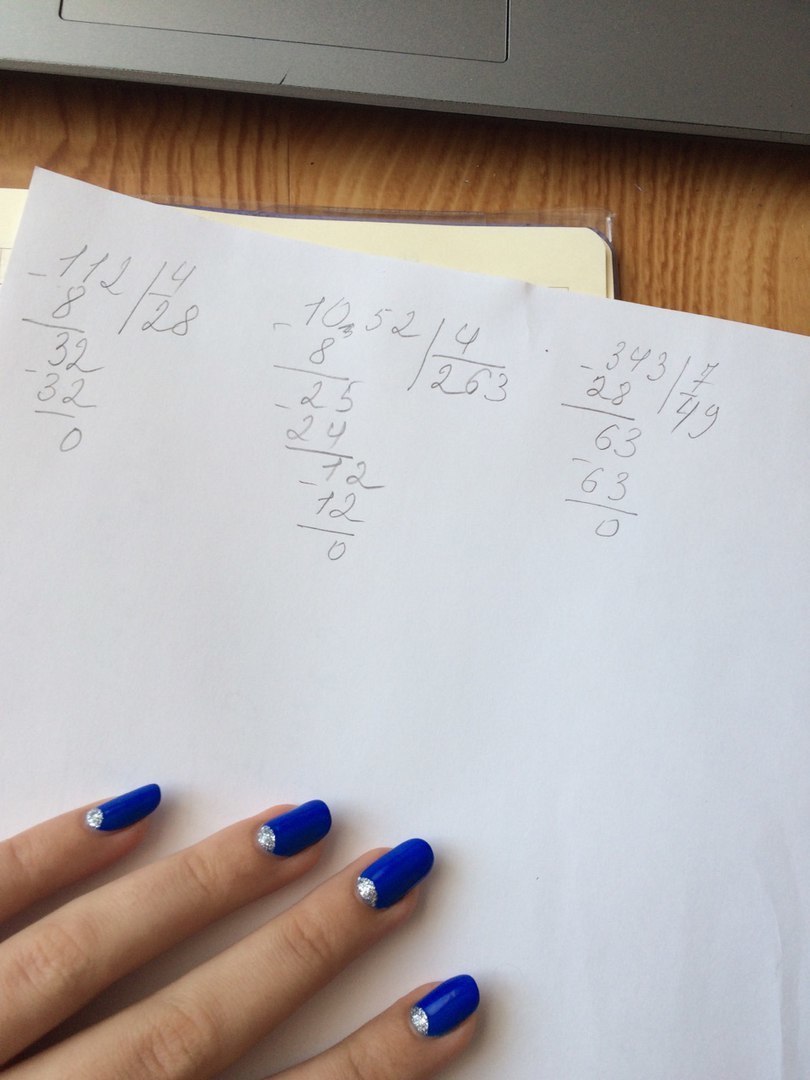 -112 | 4
8 | 28
32
-32
0
-10,52 | 4
8 | 263
-25
24
12
-12
0
-343 | 7
28 | 49
63
-63
0